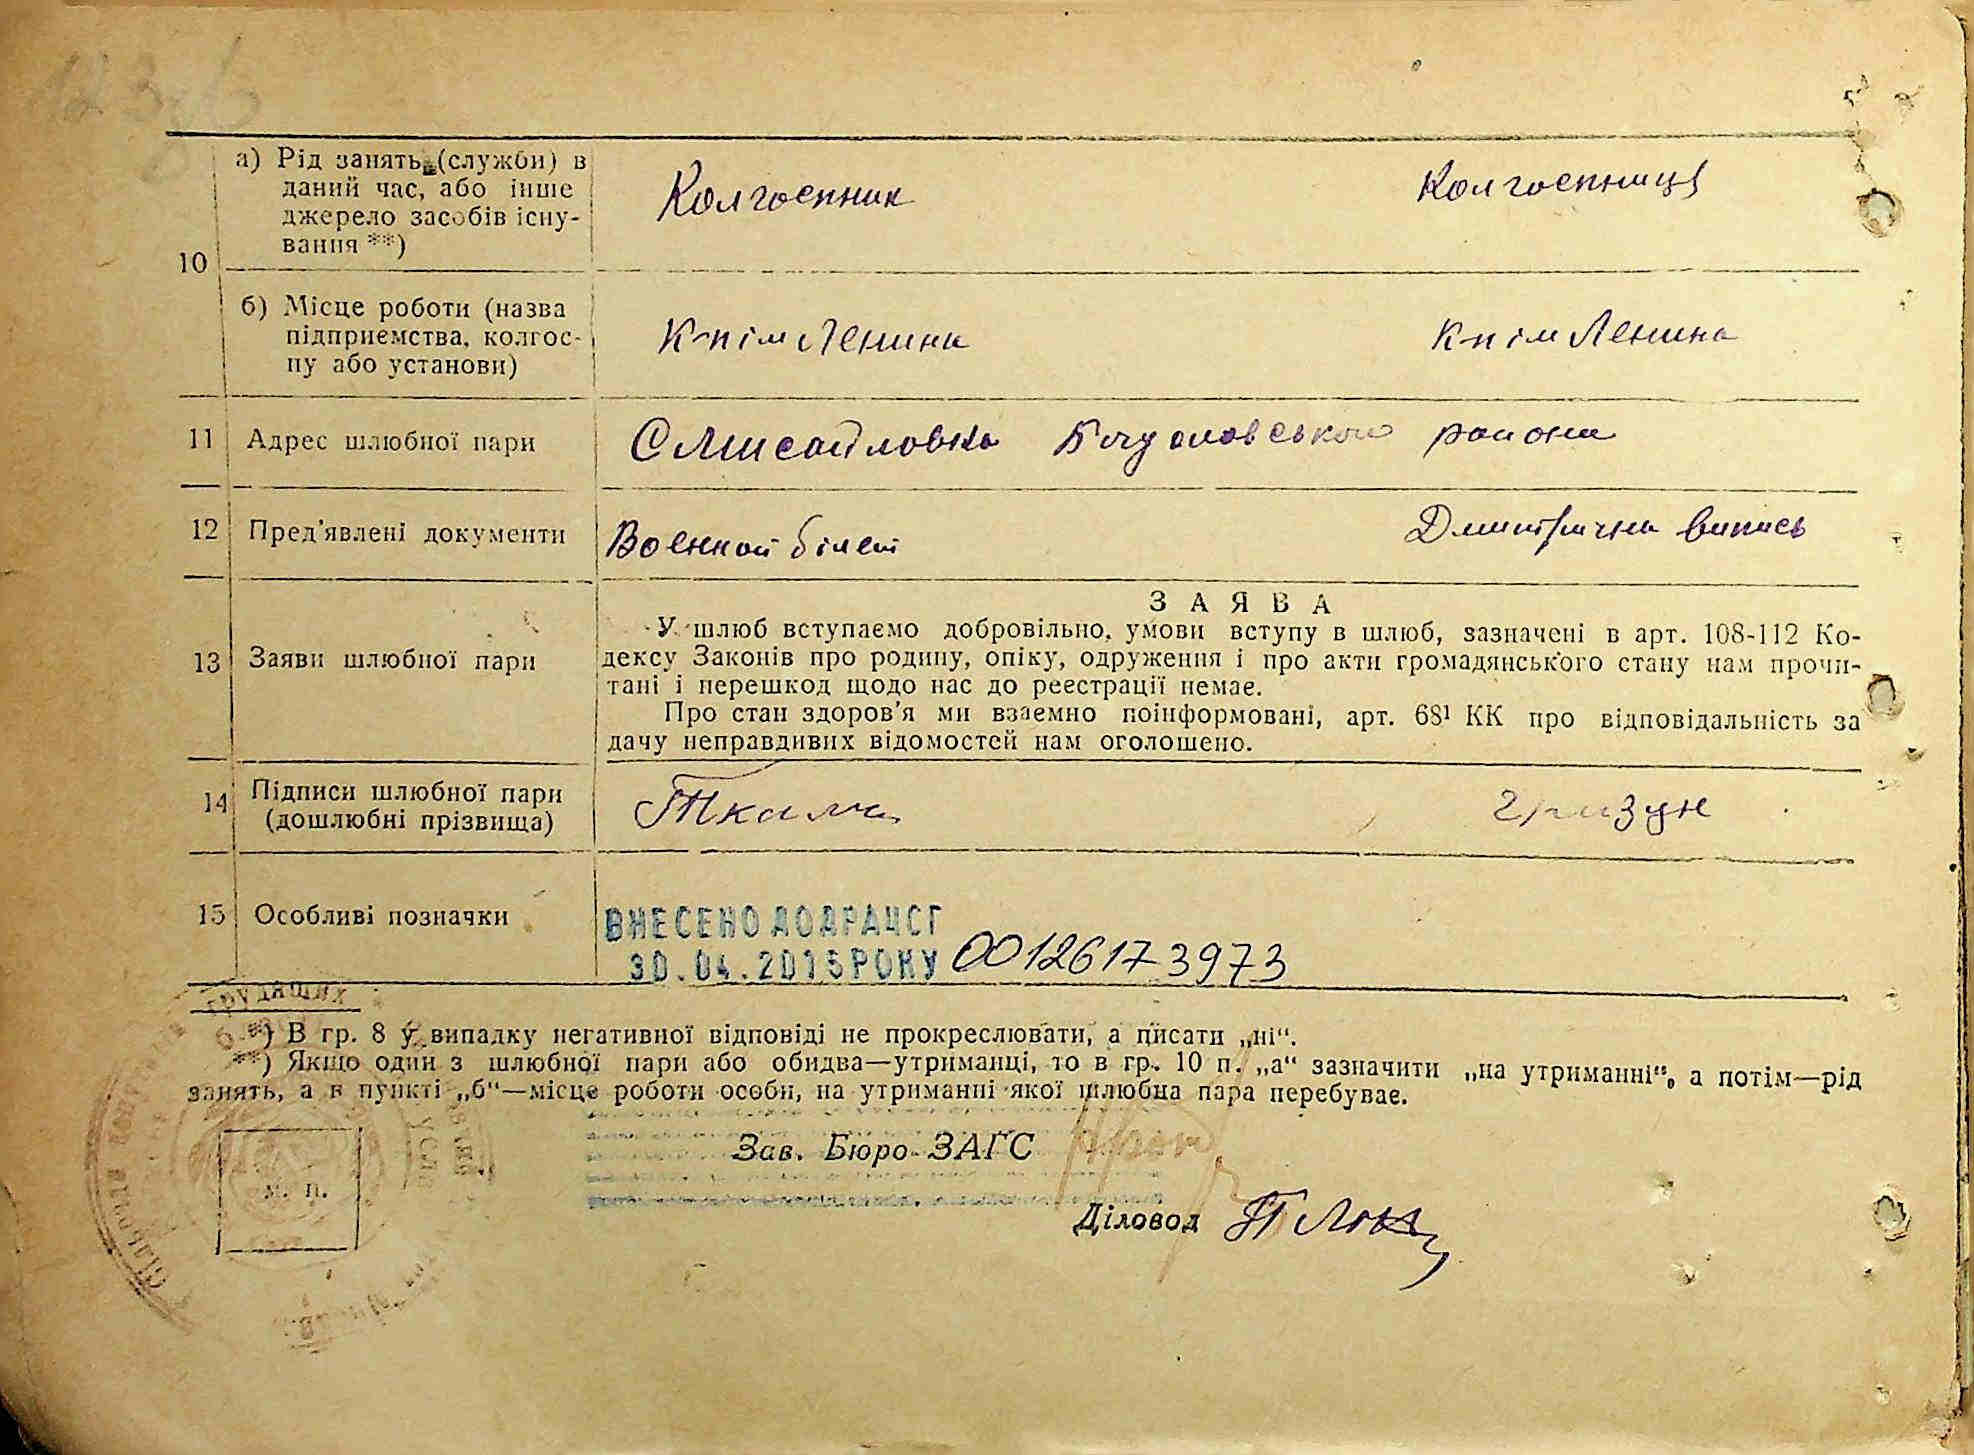 а) Рід занять (служби) в
даний час, або інше
джерело засобів існу-
вання **)
Колгоспник
Колгоспниця
10
б) Місце роботи (назва
підприємства, колгос-
пу або установи)
К-п ім Ленина
К-п ім Ленина
11 Адрес шлюбної пари
С Мисайловка Богуславського района
12 Пред'явлені документи
Военной білет
випись
З А Я В А
У шлюб вступаємо добровільно, умови вступу в шлюб, зазначені в арт. 108-112 Ко-
дексу Законів про родину, опіку, одруження і про акти громадянського стану нам прочи-
тані і перешкод щодо нас до реєстрації немає.
Про стан здоров'я ми взаємно поінформовані, арт. 68¹ КК про відповідальність за
дачу неправдивих відомостей нам оголошено.
13 Заяви шлюбної пари
14 Підписи шлюбної пари
(дошлюбні прізвища)
Гризун
15 Особливі позначки
ВНЕСЕНО ДО ДРАЦСГ
30.04.2015 РОКУ 00126173973
*) В гр. 8 у випадку негативної відповіді не прокреслювати, а писати „ні“.
**) Якщо один з шлюбної пари або обидва—утриманці, то в гр. 10 п. „а“ зазначити „на утриманні“, а потім—рід
занять, а в пункті „б“—місце роботи особи, на утриманні якої шлюбна пара перебуває.
Зав. Бюро ЗАГС
м. п.
Діловод